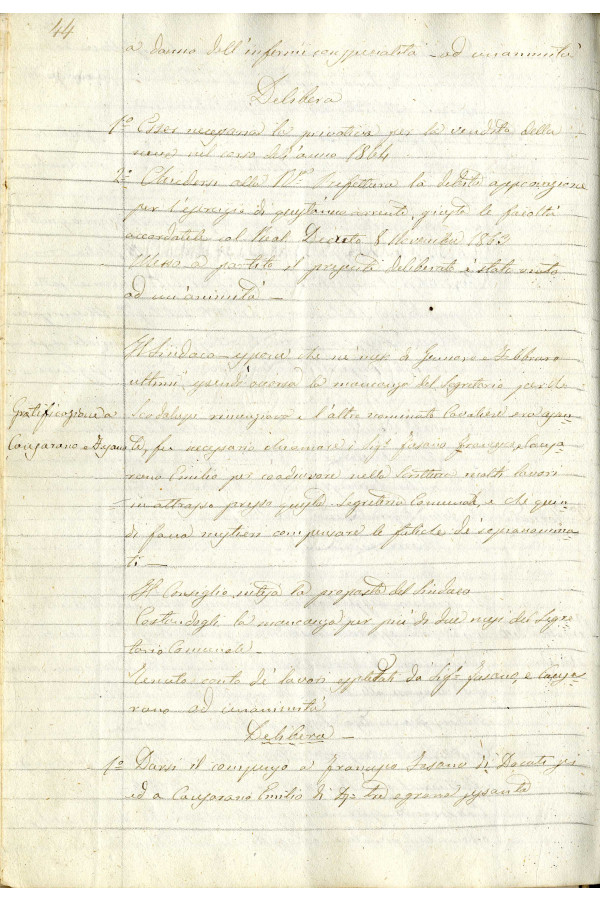 44
a danno dell'infermi con penalità - ad unanimità
Delibera
1º Esser necessaria la privativa per la vendita della
neve nel corso dell'anno 1864
2º Chiedersi alla Prefettura la debita approvazione
per l'esercizio di quest'anno corrente, giuste le facoltà
accordatele col Real Decreto 8 Novembre 1863
Messo a partito il proposto deliberato è stato votato
ad unanimità —
Il Sindaco espone che ne' mesi di Gennaro e Febbraro
ultimi, essendo occorsa la mancanza del Segretario perché
Gratificazione a
Scodalupe rinunziava e l'altro nominato Cavaliere
Canzarano e Fasano
fu necessario chiamare i Sigri Fasano Francesco, Canza=
rano Emilio per coadiuvare nella scrittura molti lavori
in attrasso presso questa Segreteria Comunale, e che quin=
di faceva mestieri compensare le fatiche de' sopranomina=
ti —
Il Consiglio, intesa la proposta del Sindaco
Costandogli la mancanza per più di due mesi del Segre=
tario Comunale —
Tenuto conto de' lavori espletati da' Sigri Fasano, e Canza=
rano ad unanimità
Delibera —
1º Darsi il compenso a Francesco Fasano di Docati sei
ed a Canzarano Emilio di tre e grana sessanta